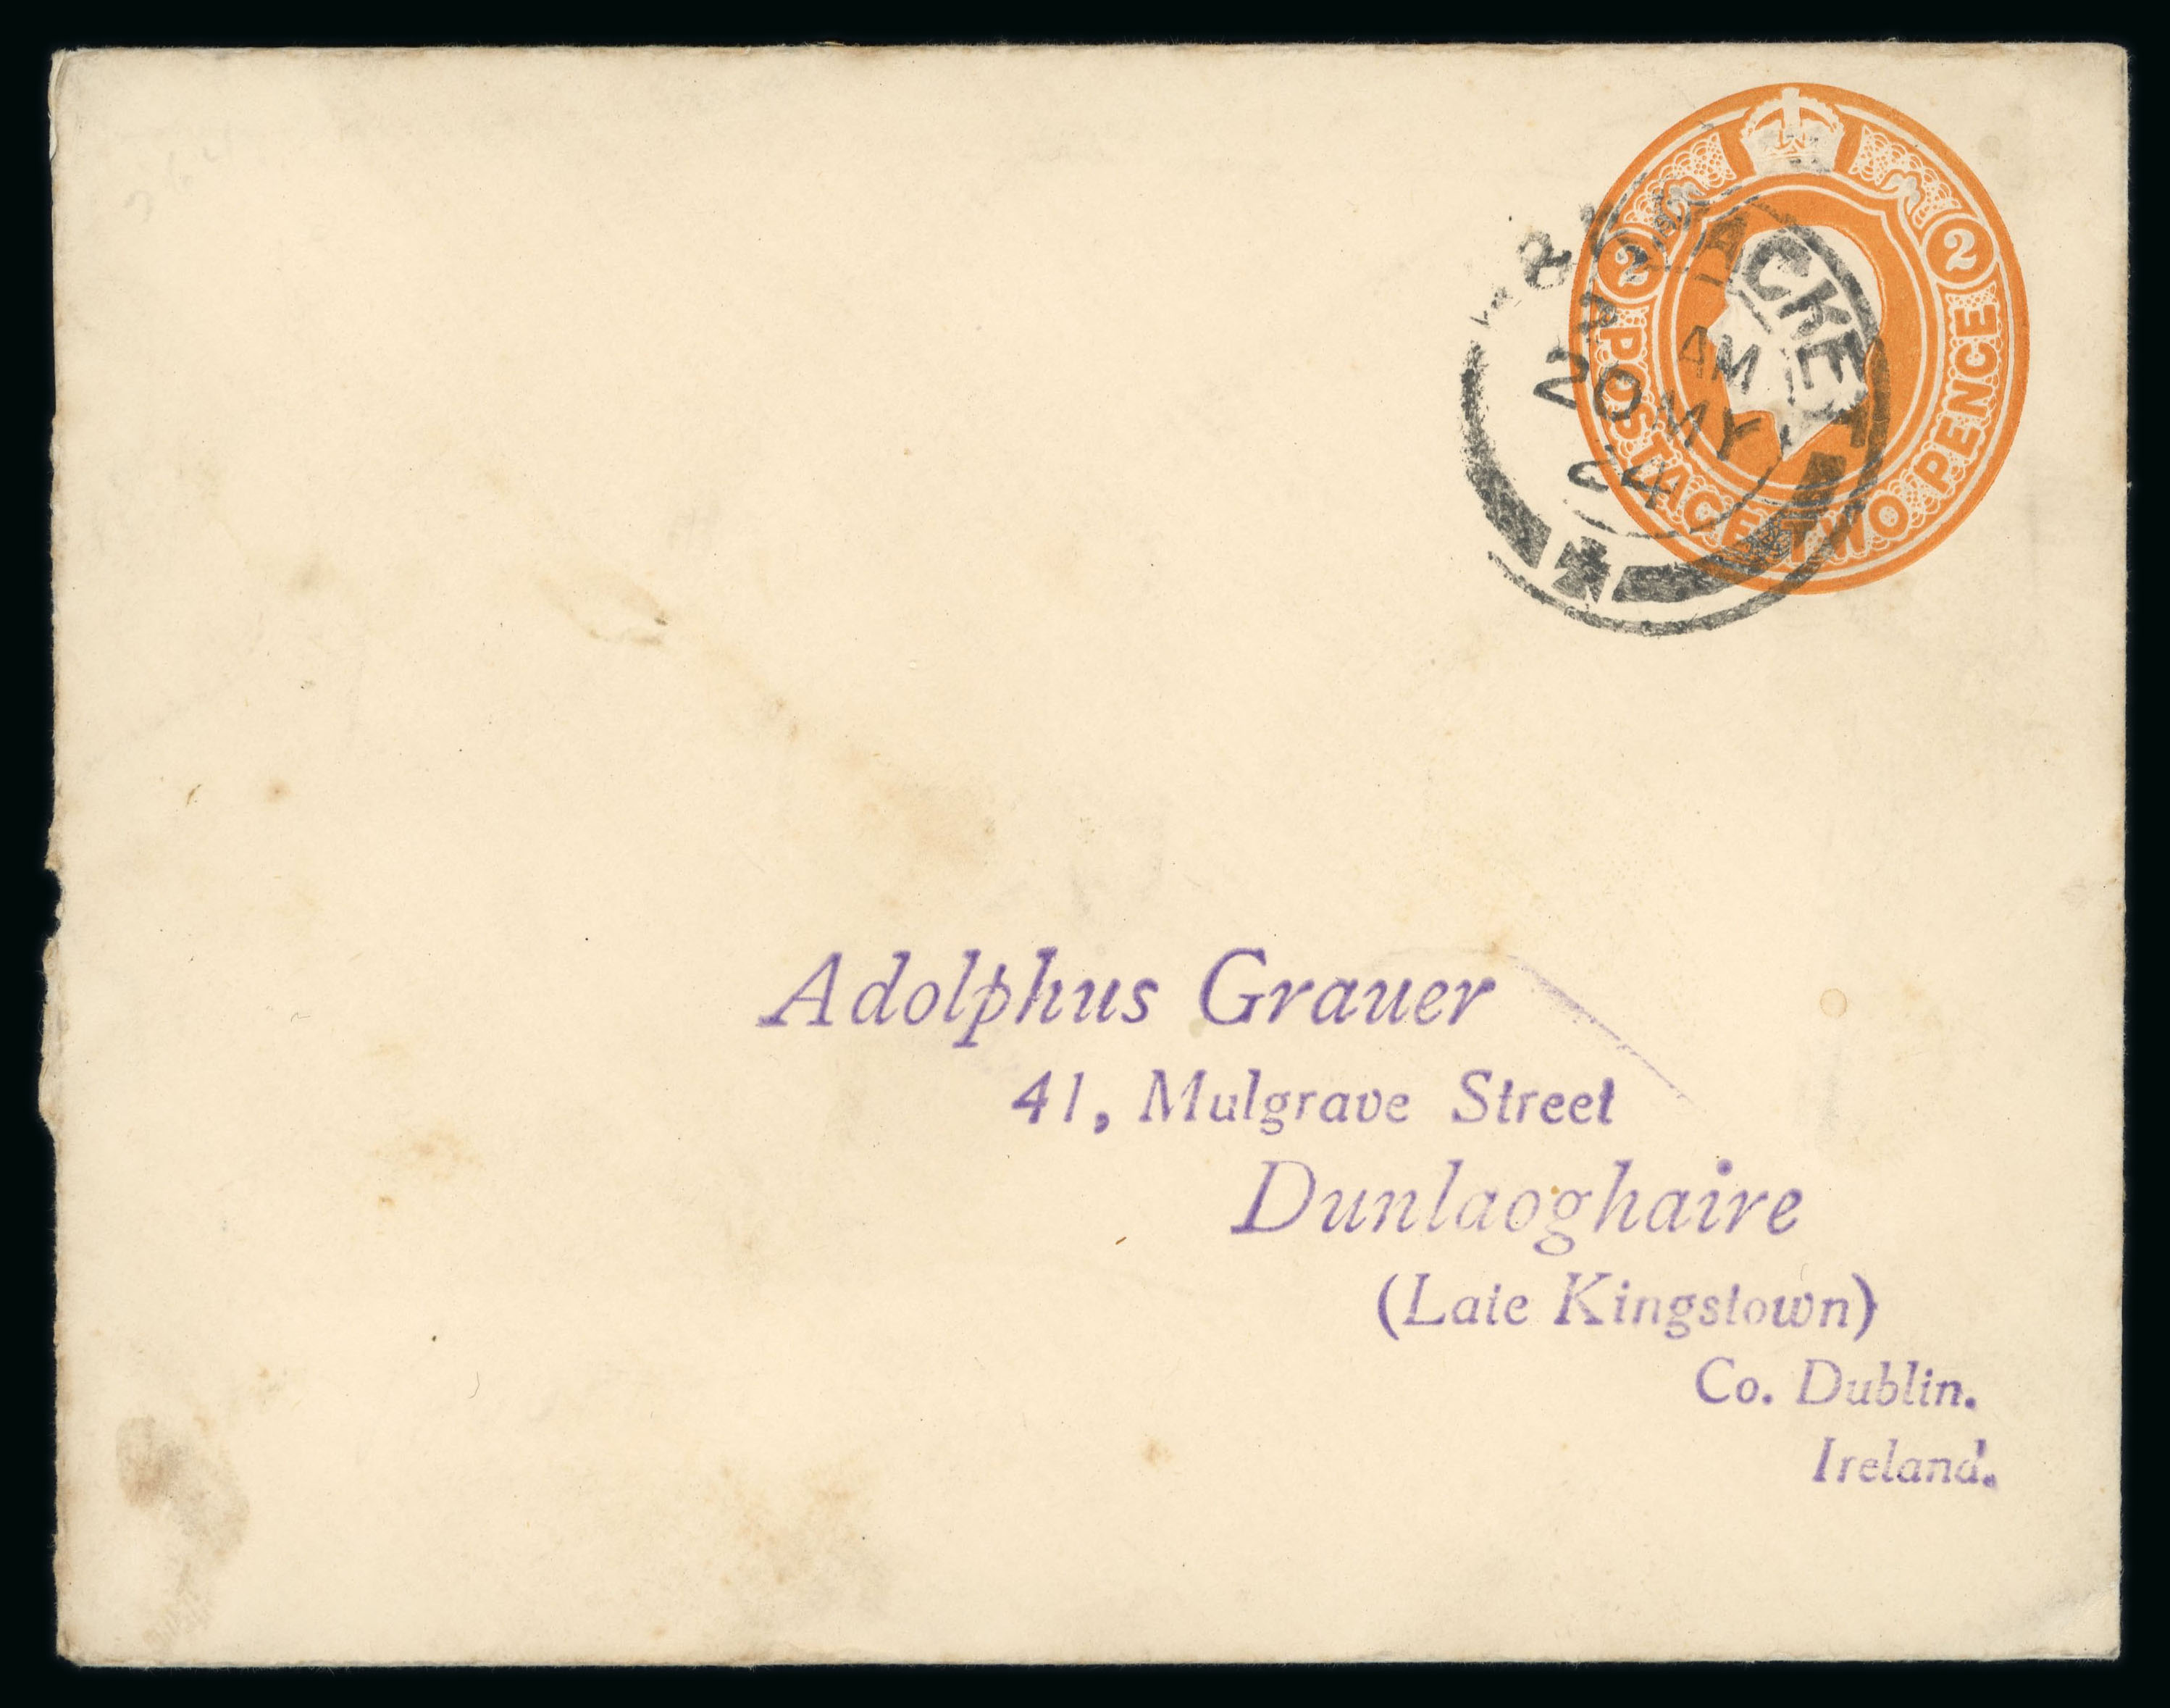 2 2
POSTAGE TWO PENCE
& K PACKET
AM
20 MY
24
Adolphus Grauer
41, Mulgrave Street
Dunlaoghaire
(Late Kingstown)
Co. Dublin.
Ireland.